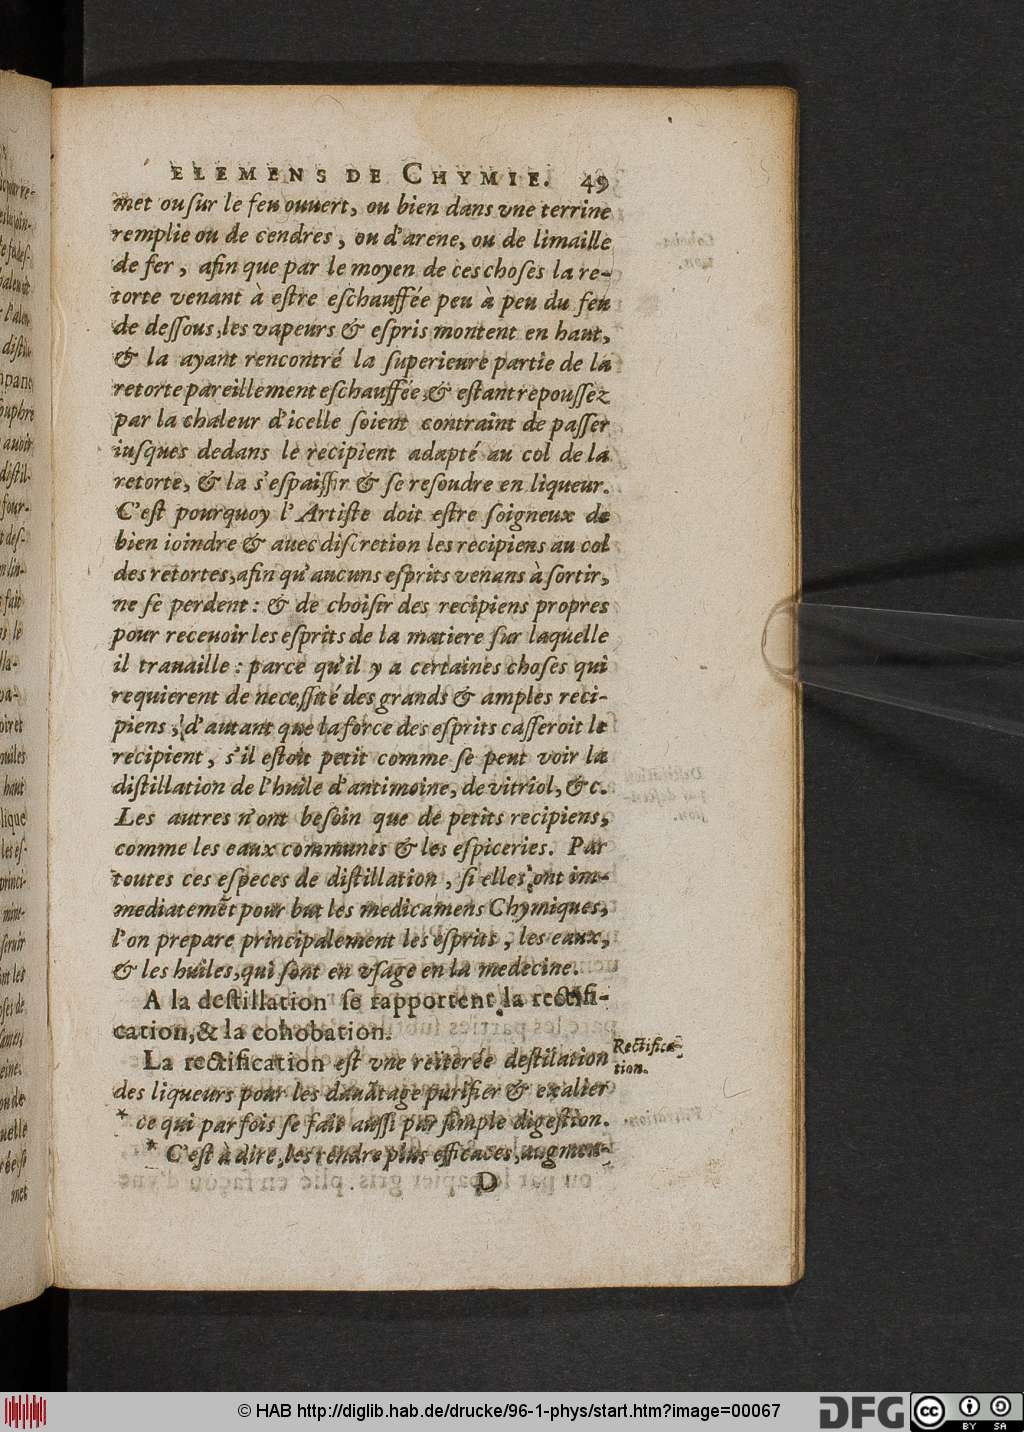 ELEMENS DE CHYMIE. 49
met ou sur le feu ouuert, ou bien dans vne terrine
remplie ou de cendres, ou d'arene, ou de limaille
de fer, afin que par le moyen de ces choses la re-
torte venant à estre eschauffée peu à peu du feu
de dessous, les vapeurs & espris montent en haut,
& la ayant rencontré la superieure partie de la
retorte pareillement eschauffée, & estant repoussez
par la chaleur d'icelle soient contraint de passer
iusques dedans le recipient adapté au col de la
retorte, & la s'espaissir & se resoudre en liqueur.
C'est pourquoy l'Artiste doit estre soigneux de
bien ioindre & auec discretion les recipiens au col
des retortes, afin qu'aucuns esprits venans à sortir,
ne se perdent: & de choisir des recipiens propres
pour receuoir les esprits de la matiere sur laquelle
il trauaille: parce qu'il y a certaines choses qui
requierent de necessité des grands & amples reci-
piens, d'autant que la force des esprits casseroit le
recipient, s'il estoit petit comme se peut voir la
distillation de l'huile d'antimoine, de vitriol, &c.
Les autres n'ont besoin que de petits recipiens,
comme les eaux communes & les espiceries. Par
toutes ces especes de distillation, si elles ont im-
mediatemẽt pour but les medicamens Chymiques,
l'on prepare principalement les esprits, les eaux,
& les huiles, qui sont en vsage en la medecine.
A la destillation se rapportent la rectifi-
cation, & la cohobation.
La rectification est vne reiterée destilation
Rectifica-
tion.
des liqueurs pour les dauãtage purifier & exalter
* ce qui par fois se fait aussi par simple digestion.
* C'est à dire, les rendre plus efficaces, augmen-
D
© HAB http://diglib.hab.de/drucke/96-1-phys/start.htm?image=00067
DFG
cc BY SA